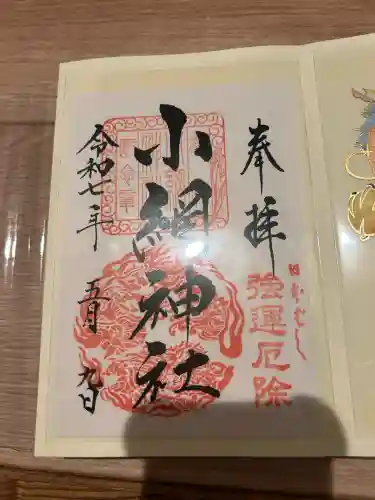 奉拝
強運厄除
小網神社
令和七年 五月 九日